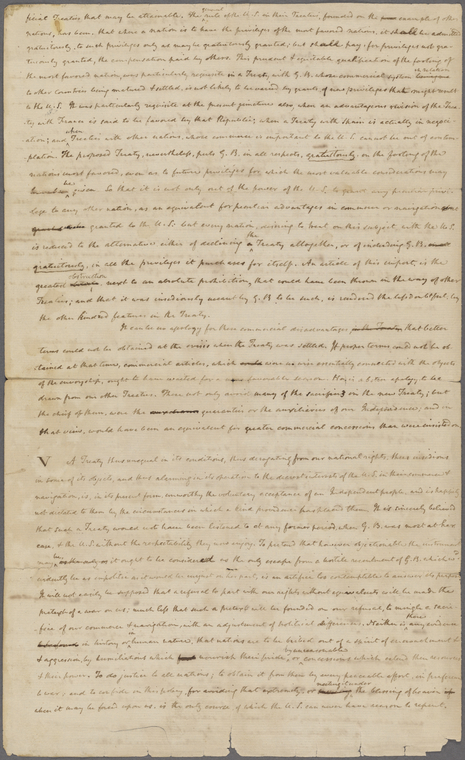 ficial Treaties that may be attainable. The general rule of the U.S. in their Treaties, founded on the example of other
nations, has been, that where a nation is to have the privileges of the most favored nations, it shall be admitted
gratuitously, to such privileges only as may be gratuitously granted; but shall pay for privileges not gra-
tuitously granted, the compensation paid by others. This prudent & equitable qualification of the footing of
the most favored nation, was particularly requisite in a Treaty with G. B. whose commercial system
to other Countries being matured & settled, is not likely to be varied by grants of new privileges that might result
to the U.S. It was particularly requisite at the present juncture also when an advantageous revision of the Trea-
ty with France is said to be favored by that Republic; when a Treaty with Spain is actually in negoci-
ation; and when Treaties with other nations, whose commerce is important to the U.S. cannot be out of contem-
plation. The proposed Treaty, nevertheless, puts G. B. in all respects, gratuitously, on the footing of the
nations most favored, even as to future privileges for which the most valuable considerations may
be given. So that it is not only out of the power of the U.S. to grant any peculiar privi-
lege to any other nation, as an equivalent for peculiar advantages in commerce or navigation
granted to the U.S. but every nation, desiring to treat on this subject, with the U.S.
is reduced to the alternative either of declining the Treaty altogether, or of including G. B.
gratuitously, in all the privileges it purchases for itself. An article of this import, is the
greatest obstruction next to an absolute prohibition, that could have been thrown in the way of other
Treaties; and that it was insidiously meant by G. B. to be such, is rendered the less doubtful, by
the other kindred features in the Treaty.
It can be no apology for these commercial disadvantages, that better
terms could not be obtained at the crisis when the Treaty was settled. If proper terms could not be ob-
tained at that time, commercial articles, which were no wise essentially connected with the objects
of the envoyship, ought to have waited for a favorable season. Nor is a better apology, to be
drawn from our other Treaties. Those not only avoid many of the sacrifices in the new Treaty; but
the chief of them, were the guaranties or the auxiliaries of our Independence, and in
that view, would have been an equivalent for greater commercial concessions than were insisted on
V A Treaty thus unequal in its conditions, thus derogating from our national rights, thus insidious
in some of its objects, and thus alarming in its operation to the dearest interests of the U.S. in their commerce &
navigation, is, in its present form unworthy the voluntary acceptance of an Independent people, and is happily
not dictated to them by the circumstances in which a kind providence has placed them. It is sincerely believed
that such a Treaty would not have been listened to at any former period, when G. B. was most at her
ease, & the U.S. without the respectability they now enjoy. To pretend that however objectionable the instrument
may be, it ought to be considered as the only escape from a hostile resentment of G. B. which would
evidently be as impolitic as it would be unjust on her part, is an artifice too contemptible to answer its purpose.
It will not easily be supposed that a refusal to part with our rights without an equivalent will be made the
pretext of a war on us; much less that such a pretext will be founded on our refusal, to mingle a sacri-
fice of our commerce & navigation, with an adjustment of political differences. Neither is there any evidence
in history or human nature, that nations are to be bribed out of a spirit of encroachment
& aggression, by humiliations which nourish their pride, or by unreasonable concessions which extend their resources
& their power. To do justice to all nations; to obtain it from them by every peaceable effort, in preference
to war; and to confide in this policy for avoiding that extremity, or meeting under the blessing of heaven
when it may be forced upon us, is the only course of which the U.S. can never have reason to repent.